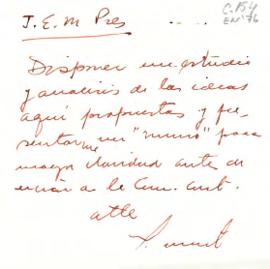 J.E.M Pres
C.154
EN'76
Disponer un estudio
y analisis de las ideas
aquí propuestas y pre
sentarme un "memo" para
mayor claridad antes de
enviar a la Com. Ant.
atte